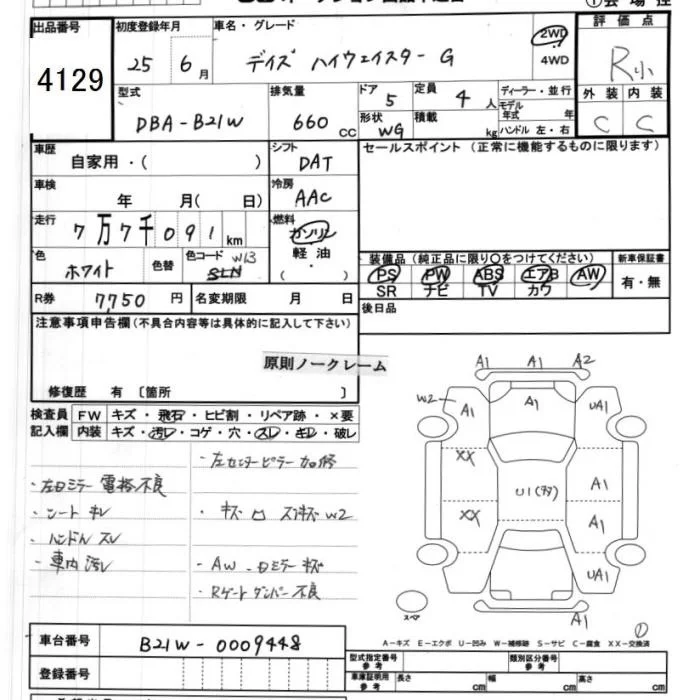 ①会場控
出品番号
4129
初度登録年月
25 6月
車名・グレード
デイズ ハイウェイスター G
2WD
4WD
評価点
R小
型式
DBA-B21W
排気量
660 CC
ドア
5
定員
4 人
形状
WG
積載
kg
ディーラー・並行
モデル年式 年
ハンドル 左・右
外装 内装
C C
車歴
自家用・( )
シフト
DAT
セールスポイント(正常に機能するものに限ります)
車検
年 月( 日)
冷房
AAC
走行
7万7千091 km
燃料
ガソリン
軽油
・
色
ホワイト
色替
色コード W13
R券
7,750 円
名変期限 月 日
装備品(純正品に限り○をつけてください)
PS PW ABS エアB AW
SR ナビ TV カワ
新車保証書
有・無
後日品
注意事項申告欄(不具合内容等は具体的に記入して下さい)
原則ノークレーム
修復歴 有〔箇所 〕
検査員記入欄
FW キズ・飛石・ヒビ割・リペア跡・×要
内装 キズ・汚レ・コゲ・穴・スレ・キレ・破レ
・左センターピラー加修
・左Dミラー電格不良
・シート キレ
・ハンドル スレ
・車内 汚レ
・キズ 凹 スレキズ W2
・AW・Dミラーキズ
・Rゲートダンパー不良
A1 A1 A2
W2 A1 A1 UA1
XX A1
U1(多)
XX A1
UA1
スペア
A1
①
A-キズ E-エクボ U-凹み W-補修跡 S-サビ C-腐食 XX-交換済
車台番号
B21W-0009448
登録番号
型式指定番号 参考
類別区分番号 参考
車庫証明用 参考
長さ cm
幅 cm
高さ cm